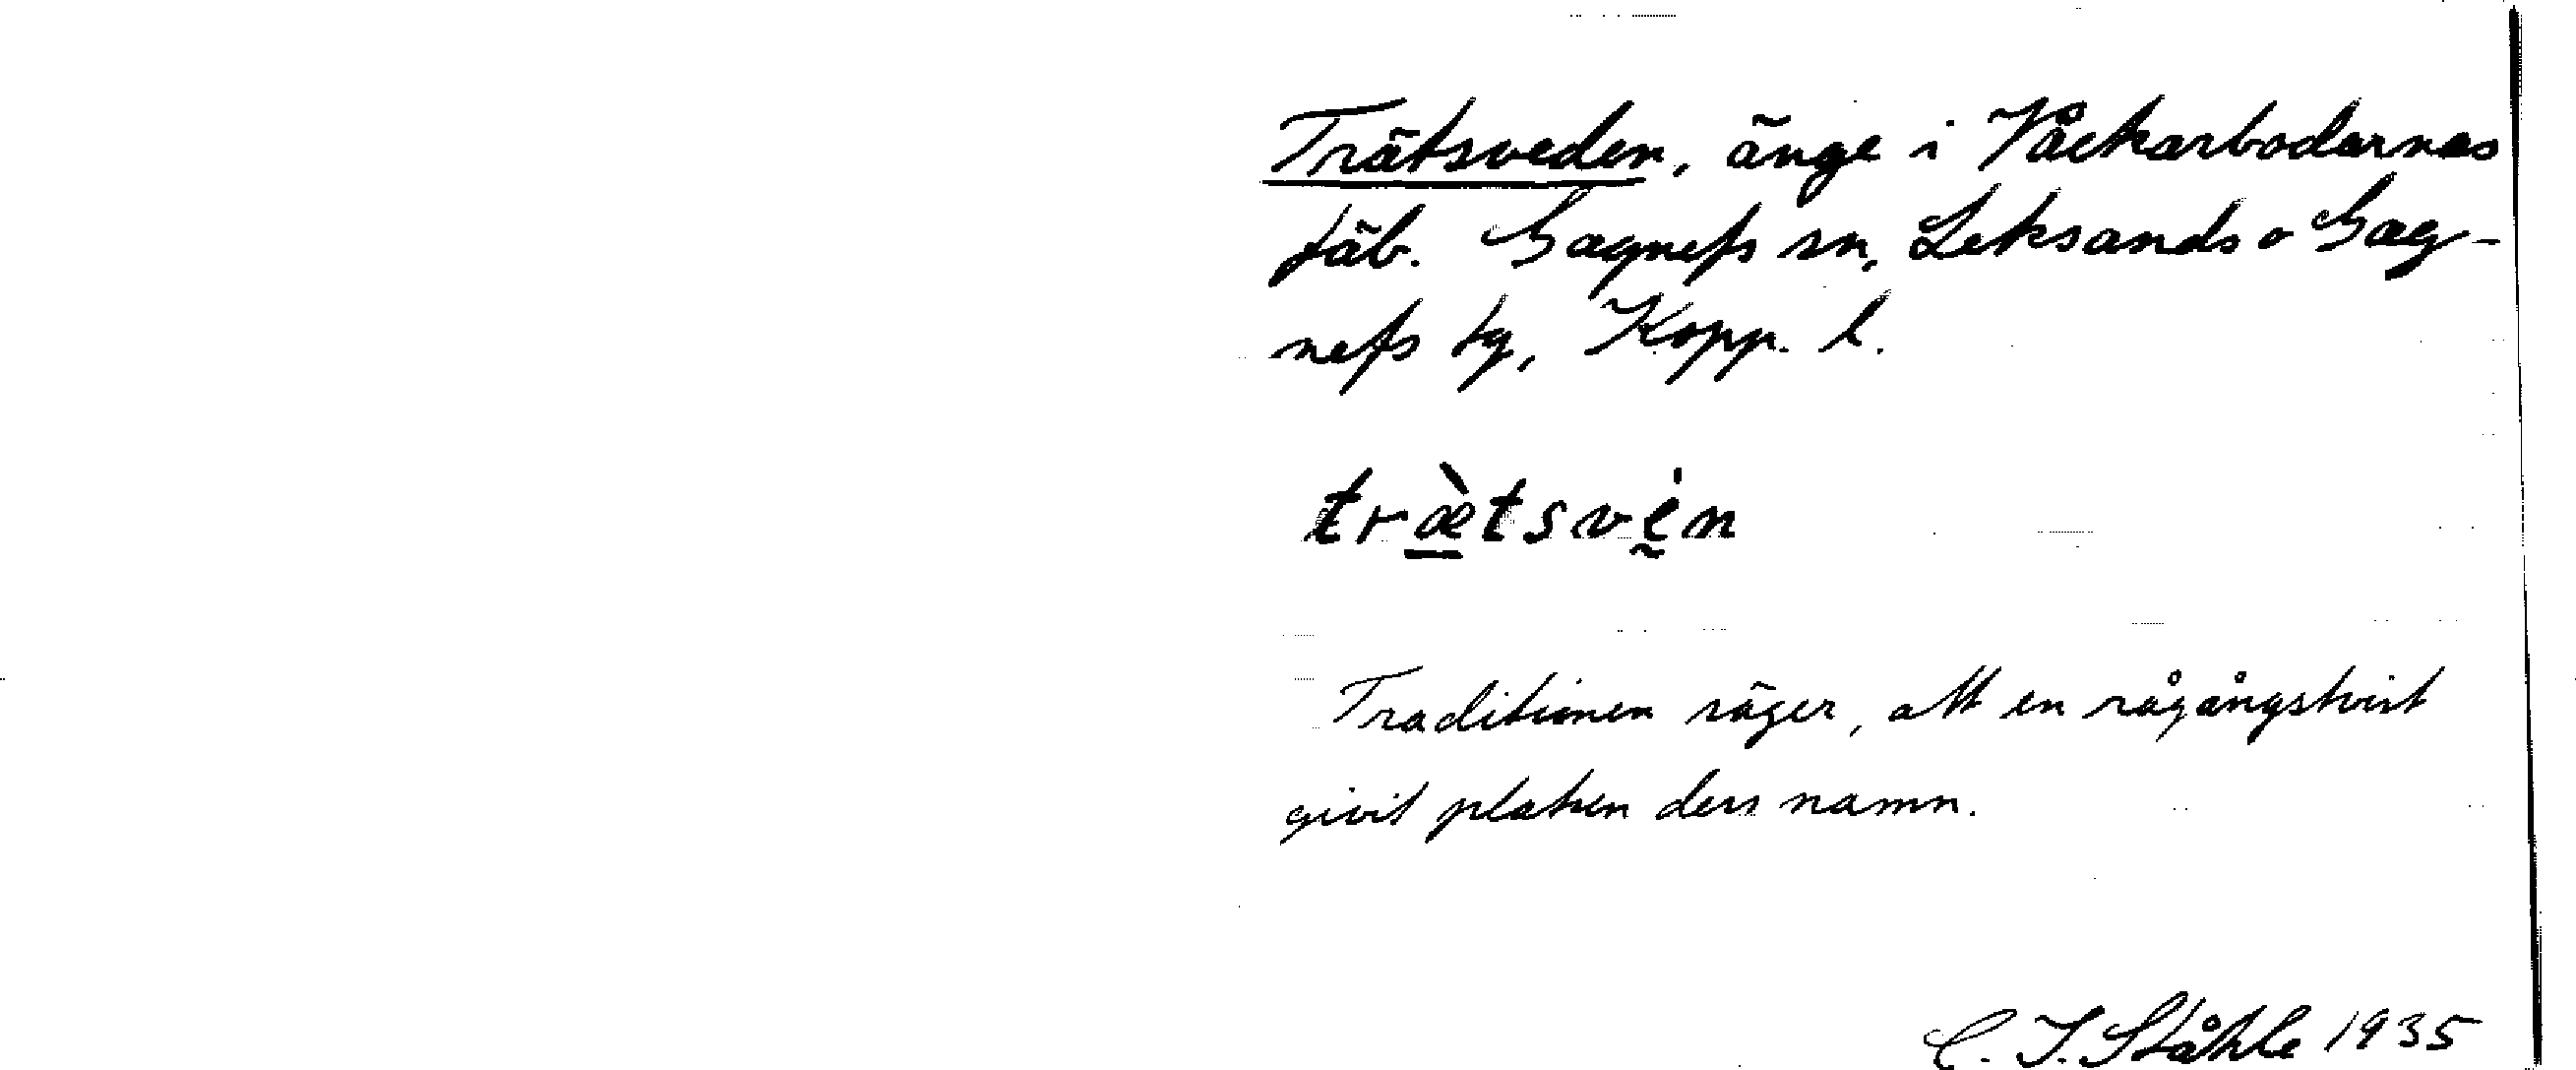 Trätsveden, änge i Våckarbodarnas
fäb. Gagnefs sn, Leksands o Gag-
nefs tg, Kopp. l.
træ̀tsvèn
Traditionen säger, att en rågångstvist
givit platsen dess namn.
C. I. Ståhle 1935